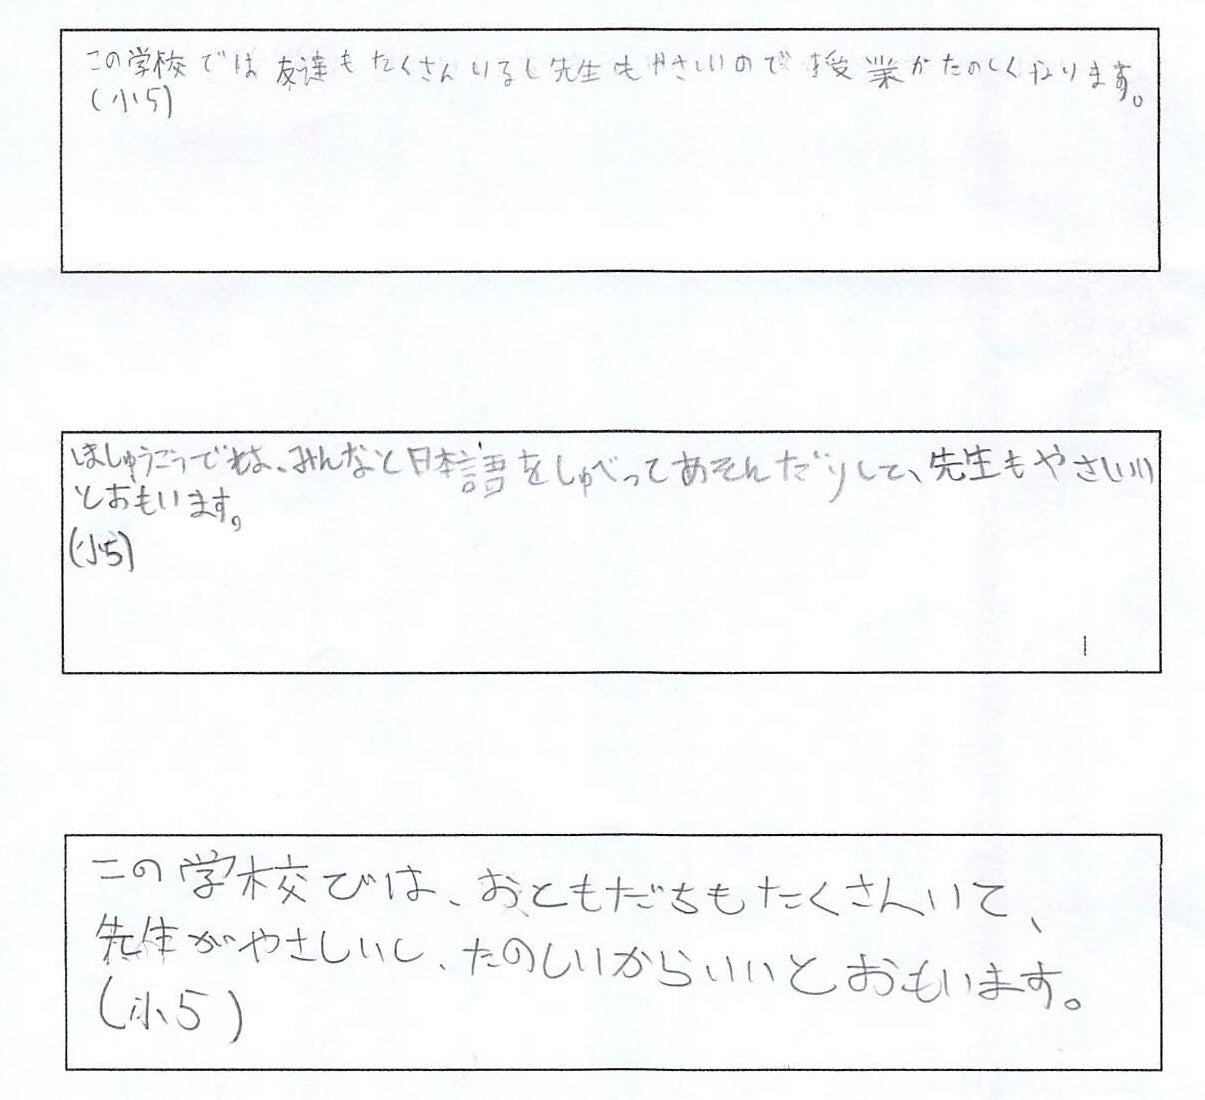 この学校では友達もたくさんいるし先生もやさしいので授業がたのしくなります。
(小5)
ほしゅうこうでは、みんなと日本語をしゃべってあそんだりして、先生もやさしい
とおもいます。
(小5)
この学校では、おともだちもたくさんいて、
先生がやさしいし、たのしいからいいとおもいます。
(小5)